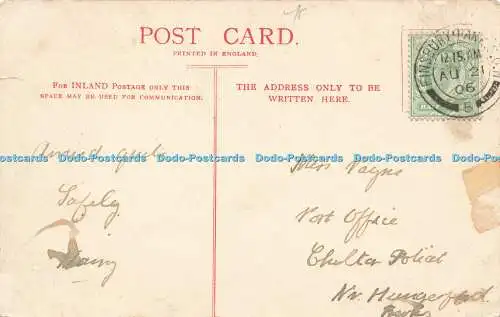 POST CARD.
PRINTED IN ENGLAND.
FOR INLAND POSTAGE ONLY THIS
SPACE MAY BE USED FOR COMMUNICATION.
THE ADDRESS ONLY TO BE
WRITTEN HERE.
12.15 AM
AU 21
06
Arrived quite
Safely
Dodo-Postcards Dodo-Postcards Dodo-Postcards Dodo-Postcards Dodo-Postcards Dodo-Postcards
Miss
Post Office
Nr. Hungerford
Berks